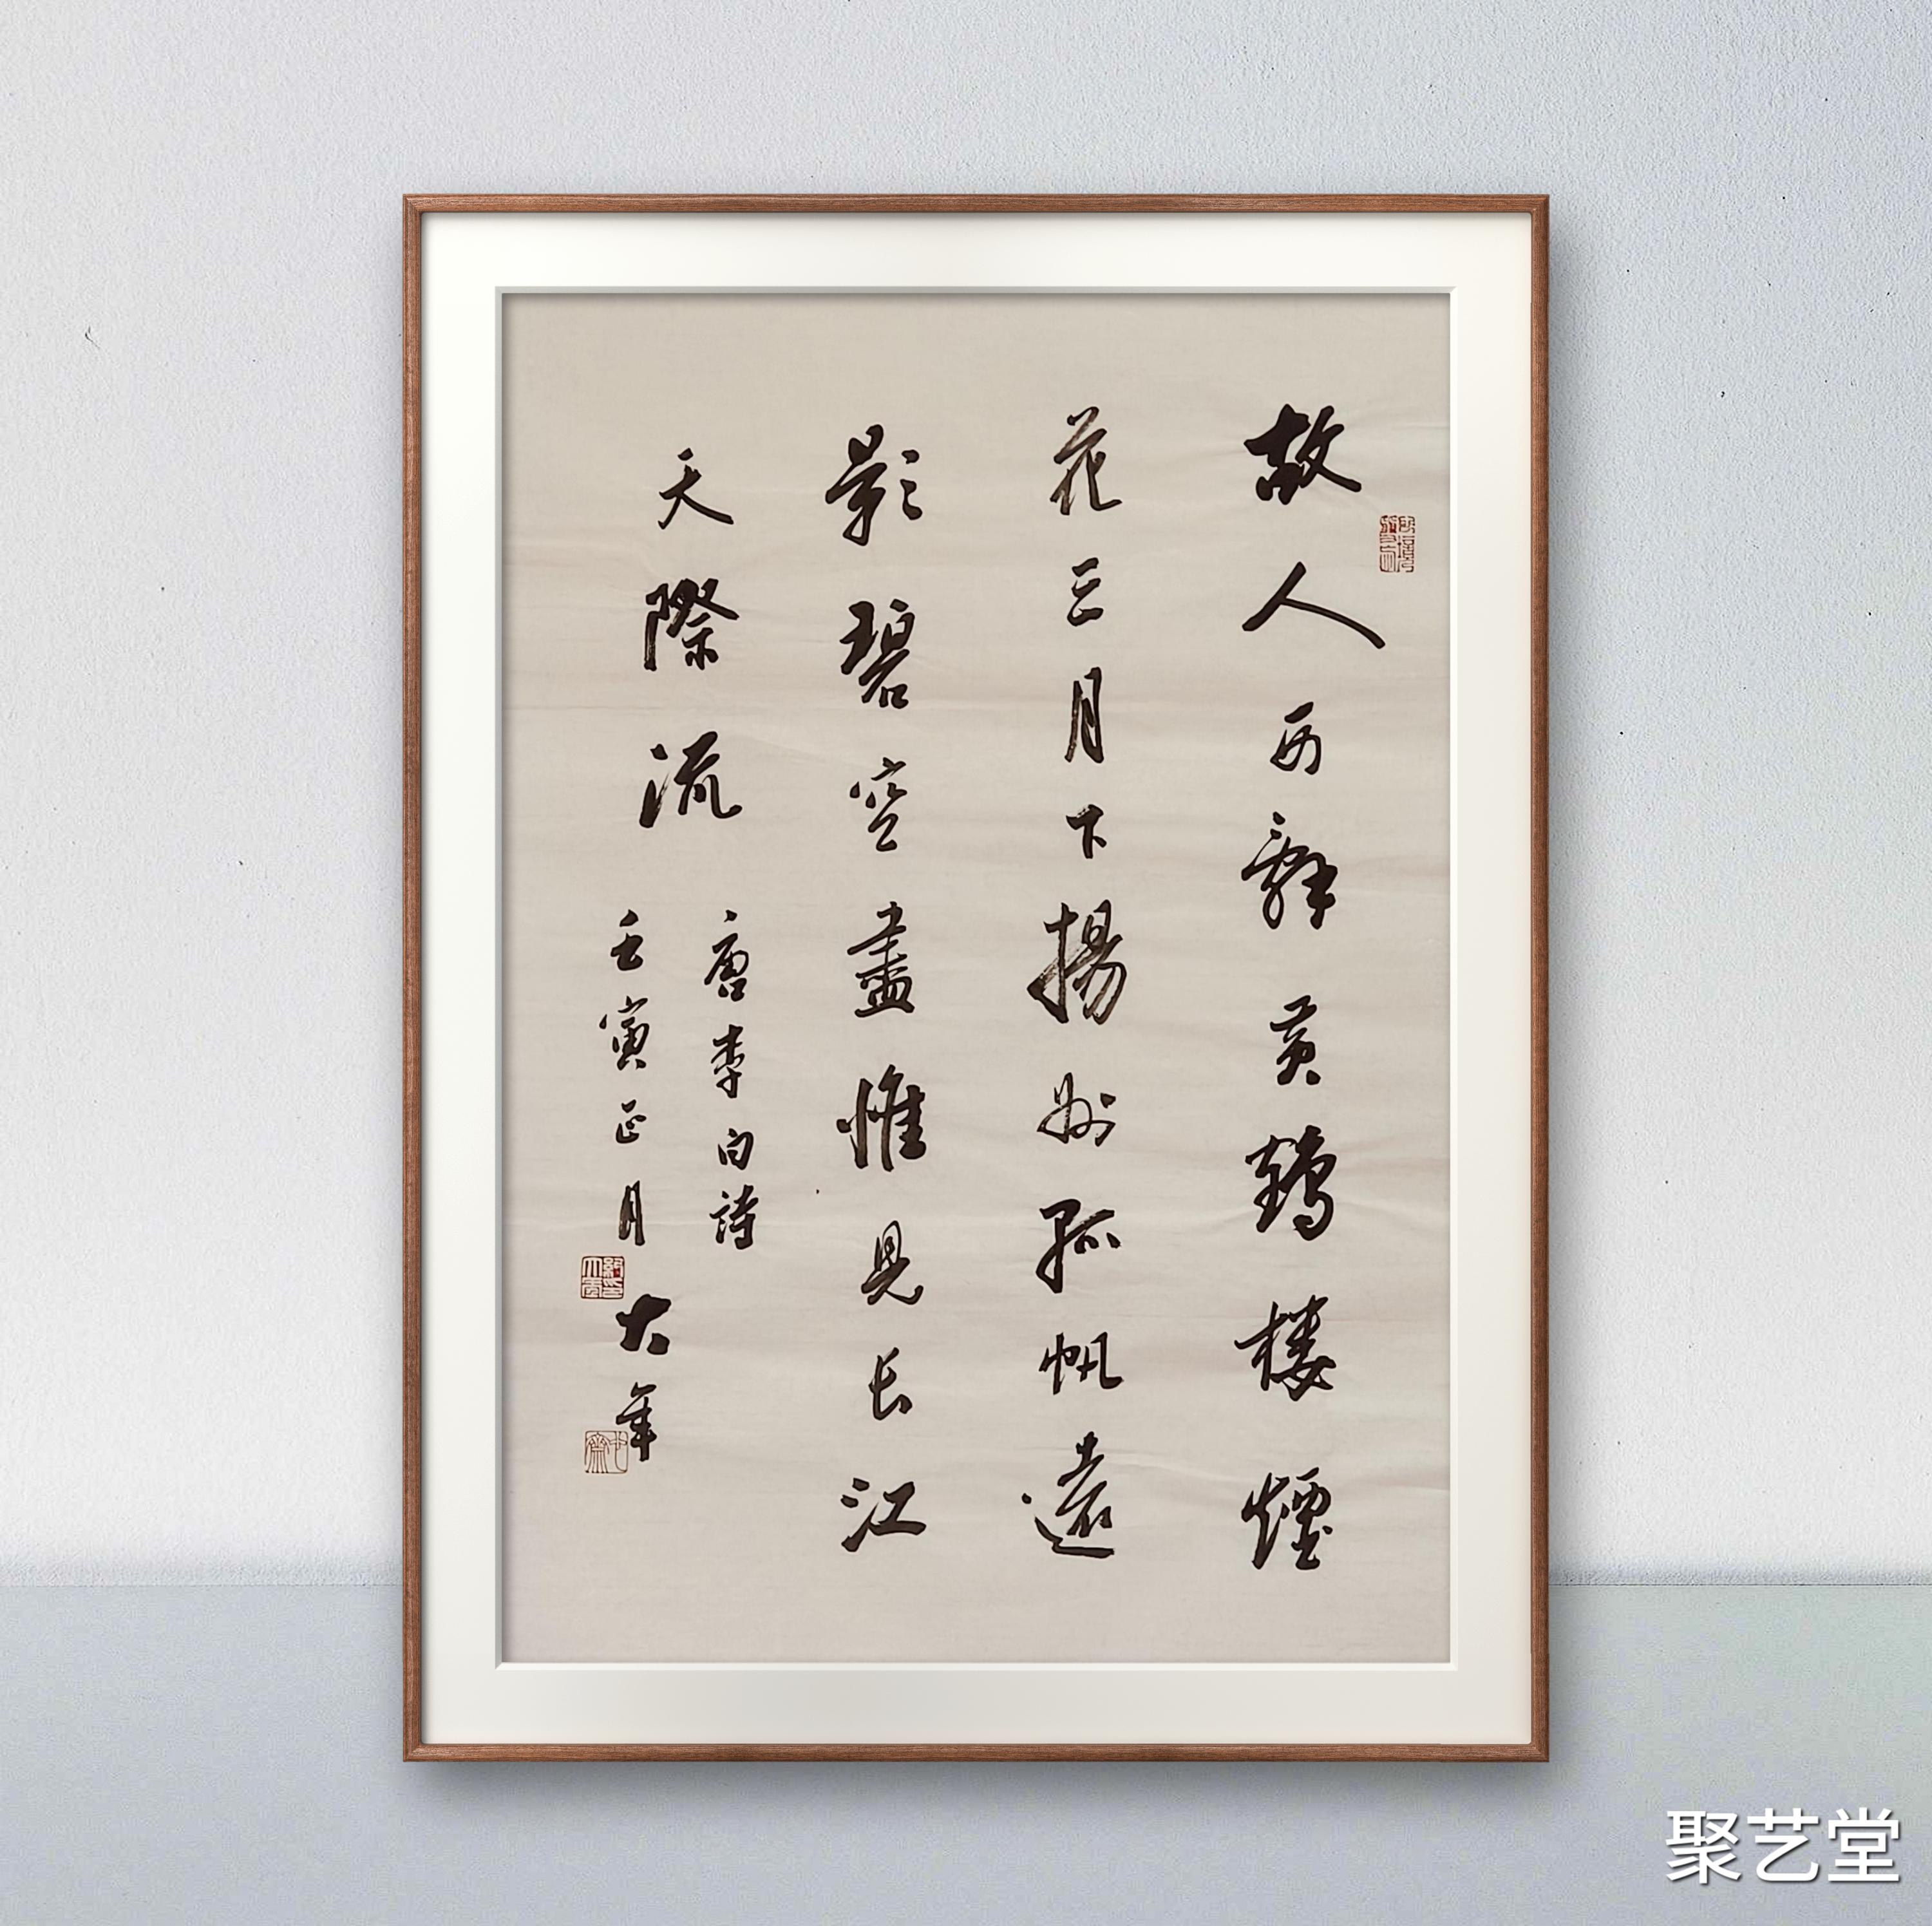 故人西辭黃鶴樓煙
花三月下揚州孤帆遠
影碧空盡惟見長江
天際流
唐李白詩
壬寅正月
大年
聚艺堂